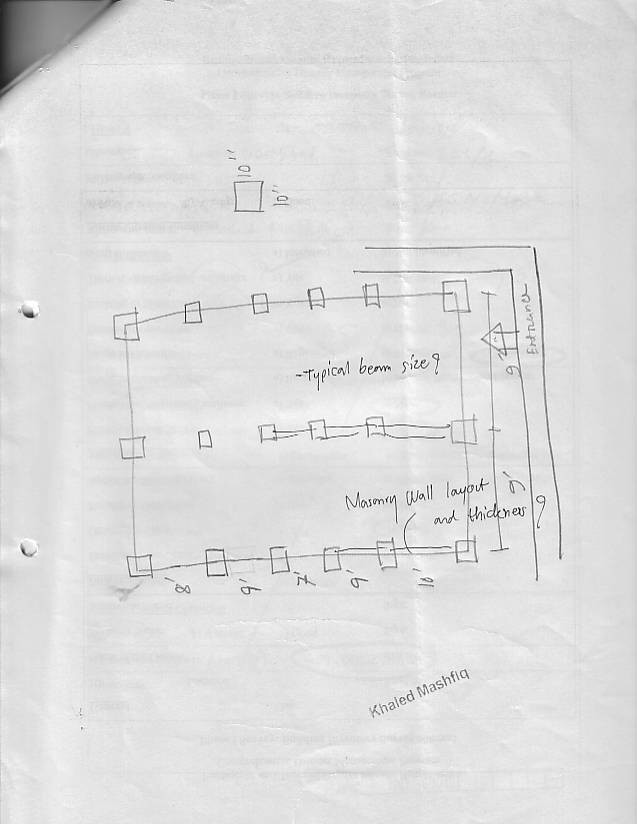 10"
10"
Entrance
9'
- Typical beam size?
Masonry Wall layout
and thickness?
9'
8'
9'
7'
9'
10'
Khaled Mashfiq